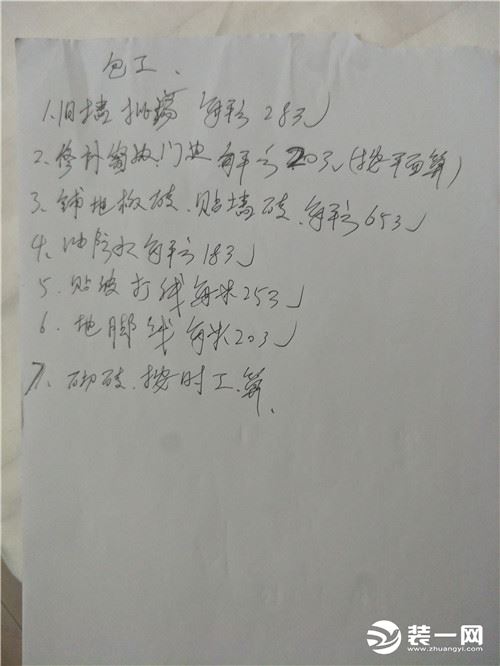 包工、
1、旧墙批荡 每平方28元
2、修补窗边、门边 每平方20元(按平面算)
3、铺地板砖、贴墙砖、每平方65元
4、油防水每平方18元
5、贴波打线每米25元
6、地脚线每米20元
7、砌砖、按时工算、
装一网
www.zhuangyi.com